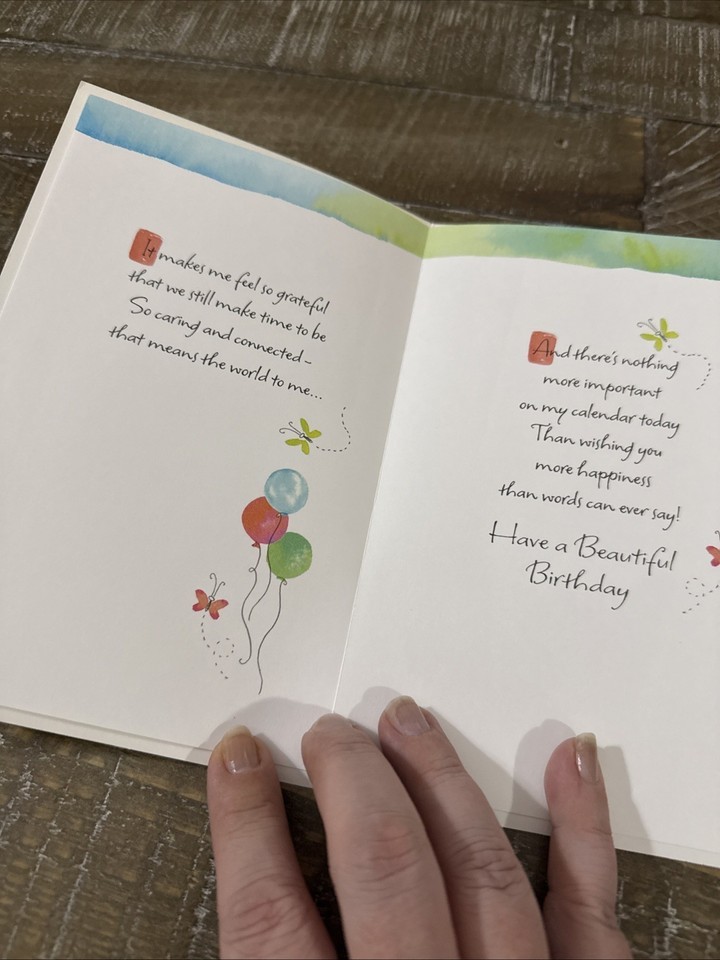 It makes me feel so grateful
that we still make time to be
So caring and connected–
that means the world to me...
And there's nothing
more important
on my calendar today
Than wishing you
more happiness
than words can ever say!
Have a Beautiful
Birthday